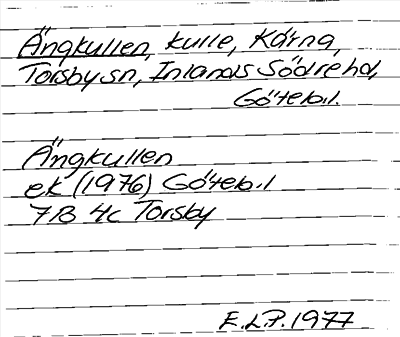 Ängkullen, kulle, Kärna,
Torsby sn, Inlands Södre hd,
Göteb.l.
Ängkullen
ek (1976) Göteb.l
7B 4c Torsby
E.L.P. 1977